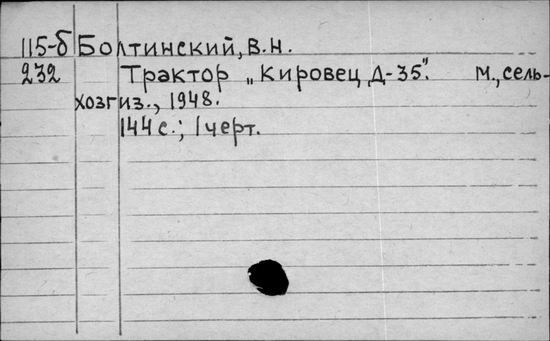 115-б Болтинский, В.Н.
232 Трактор „Кировец Д-35". М., сель-
хозгиз., 1948.
144 с.; 1 черт.